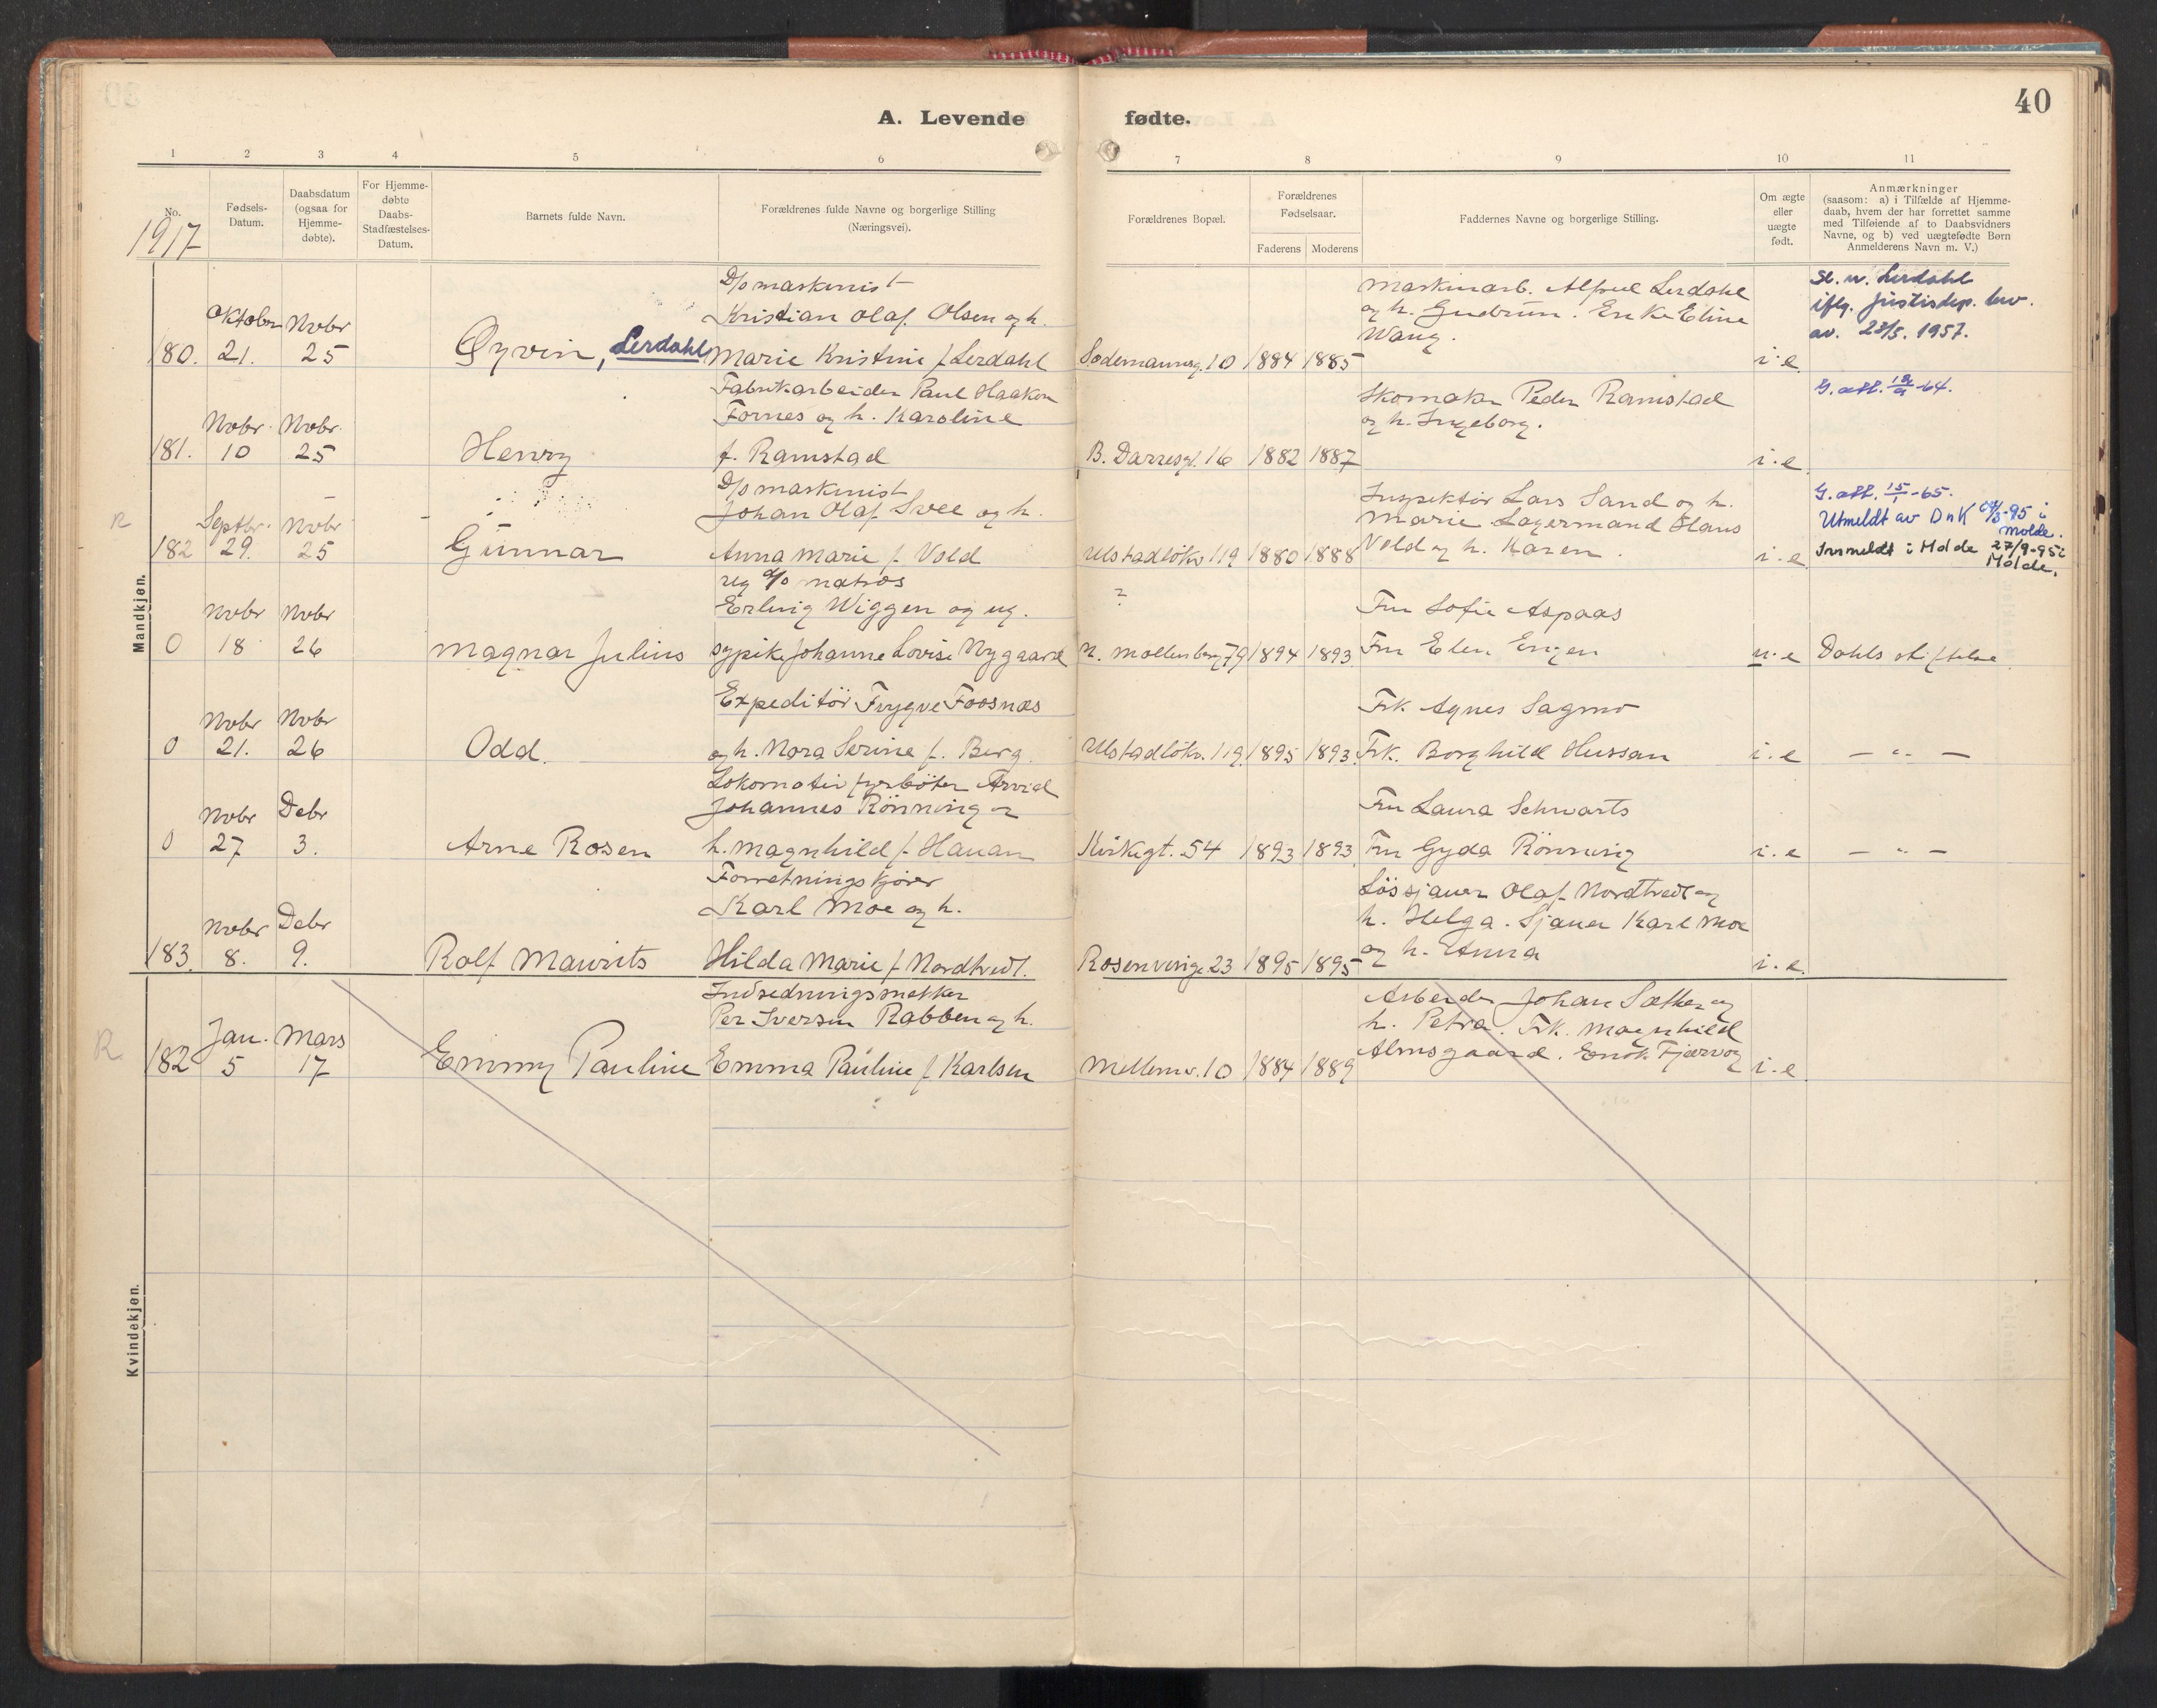 40
A. Levende fødte.
1 2 3 4 5 6 7 8 9 10 11
No.
1917
Fødsels-
Datum.
Daabsdatum
(ogsaa for
Hjemme-
døbte).
For Hjemme-
døbte
Daabs-
Stadfæstelses-
Datum.
Barnets fulde Navn.
Forældrenes fulde Navne og borgerlige Stilling
(Næringsvei).
Forældrenes Bopæl.
Forældrenes
Fødselsaar.
Faderens Moderens
Faddernes Navne og borgerlige Stilling.
Om ægte
eller
uægte
født.
Anmærkninger
(saasom: a) i Tilfælde af Hjemme-
daab, hvem der har forrettet samme
med Tilføiende af to Daabsvidners
Navne, og b) ved uægtefødte Børn
Anmelderens Navn m. V.)
Mandkjøn.
180. Oktober 21. Novbr 25
Øyvin, Lerdahl
D/s maskinist
Kristian Olaf Olsen og h.
Marie Kristine f. Lerdahl
Sodemannsg. 10 1884 1885
Maskinarb. Alfred Lerdahl
og h. Gudrun. Enke Eline
Wang.
i.e.
Sl. n. Lerdahl
iflg. Justisdep. bev.
av. 23/5. 1957.
181. Novbr. 10 Novbr. 25
Henry
Fabrikarbeider Paul Haaken
Fornes og h. Karoline
f. Ramstad
B. Darresgt. 16 1882 1887
Skomaker Peder Ramstad
og h. Ingeborg.
i.e.
G. att. -64.
R
182 Septbr. 29. Novbr 25
Gunnar
D/s maskinist
Johan Olaf Svee og h.
Anna Marie f. Vold
Ulstadløkv. 119 1880 1888
Inspektør Lars Sand og h.
Marie Lagermand Hans
Vold og h. Karen.
i.e.
G. att. 15/1 -65.
Utmeldt av DnK -95 i
Molde.
Innmeldt i Molde 27/9-95 i
Molde.
0 Novbr 18 Novbr 26
Magnar Julius
ug d/s matros
Erling Wiggen og ug.
sypike Johanne Lovise Nygaard
?
N. Møllenberg 79 1894 1893
Fru Sofie Aspaas
Fru Elen Engen
u.e
Dahls stiftelse
0 Novbr 21. Novbr 26
Odd.
Expeditør Trygve Foosnæs
og h. Nora Serine f. Berg.
Ulstadløkv. 119. 1895 1893.
Frk. Agnes Sagmo
Frk. Borghild Hussan
i.e
— " —
0 Novbr 27 Debr 3.
Arne Rosen
Lokomotiv fyrbøter Arvid
Johannes Rönning og
h. Magnhild f. Hauan
Kirkegt. 54 1893 1893
Fru Laura Schwarts
Fru Gyda Rönning
i.e
— " —
183. Novbr 8. Debr 9.
Rolf Maurits
Forretningskjører
Karl Moe og h.
Hilda Marie f. Nordtvedt.
Rosenvinge 23 1895 1895
Løssjauer Olaf Nordtvedt og
h. Helga. Sjauer Karl Moe
og h. Anna
i.e.
Kvindekjøn.
R
182 Jan. 5 Mars 17
Emmy Pauline
Indredningssnekker
Per Iversen Rabben og h.
Emma Pauline f. Karlsen
Mellemv. 10 1884 1889
Arbeider Johan Sæther og
h. Petra. Frk. Magnhild
Almsgaard. Enok Fjærvog
i.e.